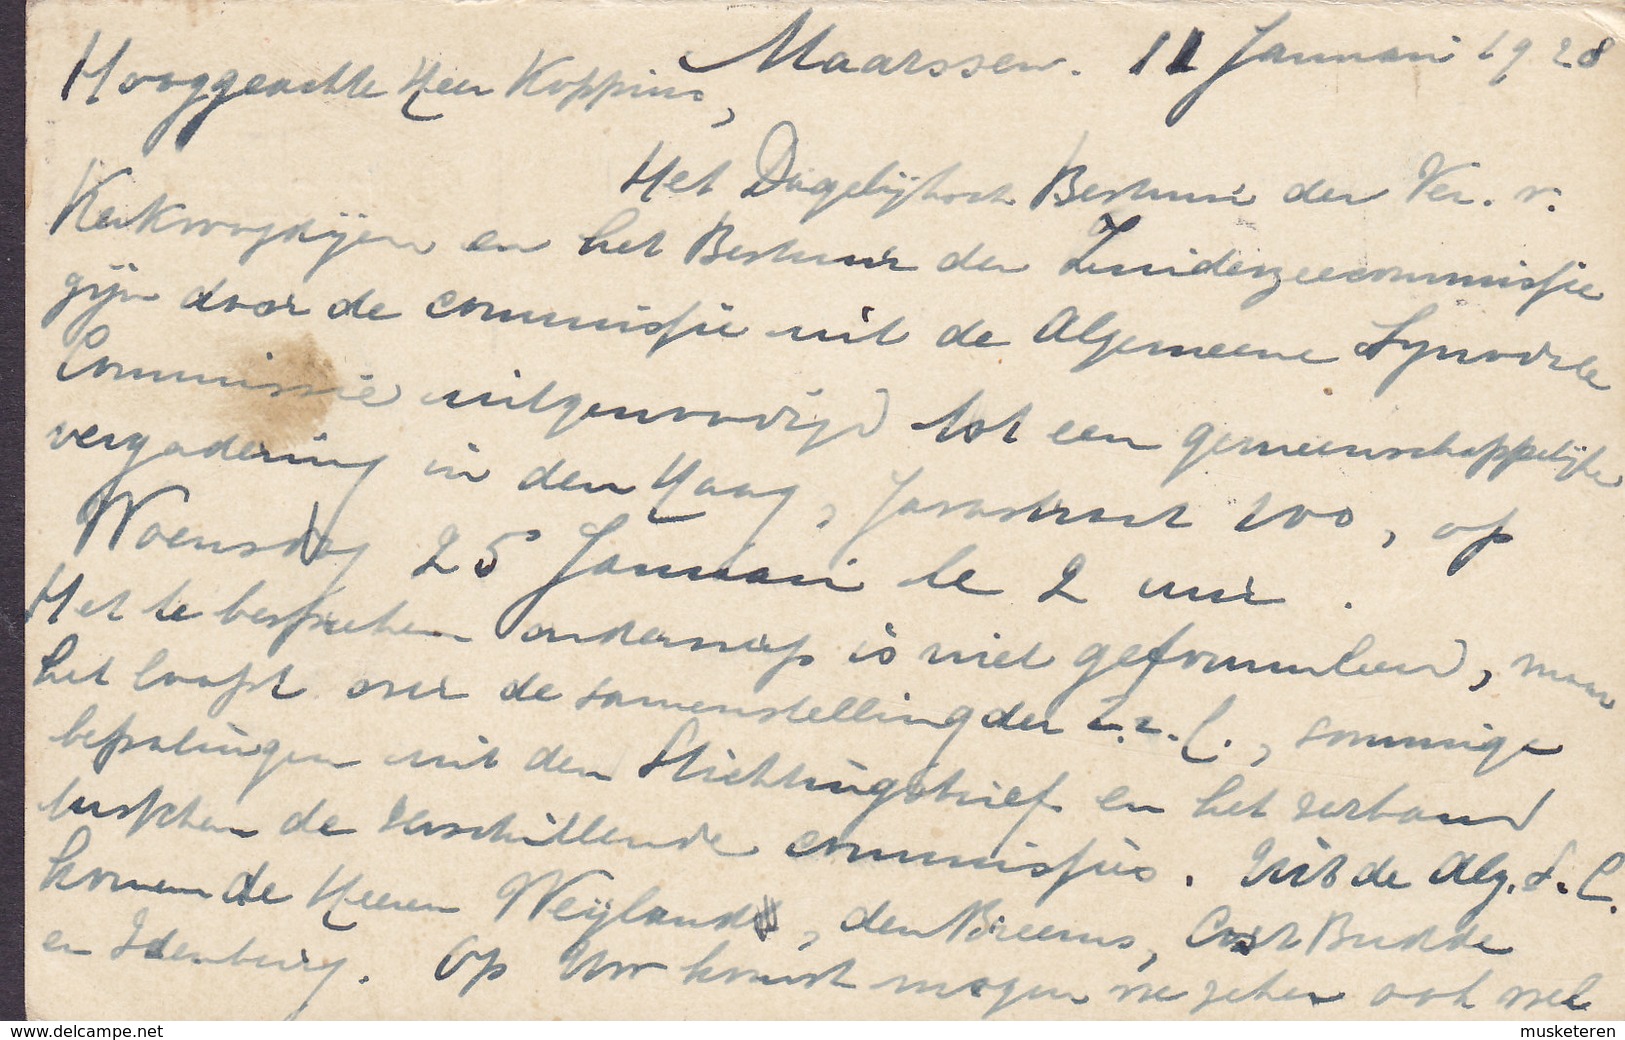 Maarssen. 11 Januari 1928
Hooggeachte Heer Koppius,
Het Dagelijksch Bestuur der Ver. v.
Kerkvoogdijen en het Bestuur der Zuiderzeecommissie
zijn door de commissie uit de Algemeene Synodale
Commissie uitgenoodigd tot een gemeenschappelijke
vergadering in den Haag, Javastraat 100, op
Woensdag 25 Januari te 2 uur.
Het te bespreken onderwerp is niet geformuleerd, maar
het loopt over de samenstelling der Z.z.C., sommige
bepalingen uit den Stichtingsbrief en het verband
tusschen de verschillende commissies. Uit de Alg. S. C.
komen de Heeren Weyland, den Breems, Cost Budde
en Idenburg. Op Uw komst mogen we zeker ook wel
musketeren.com